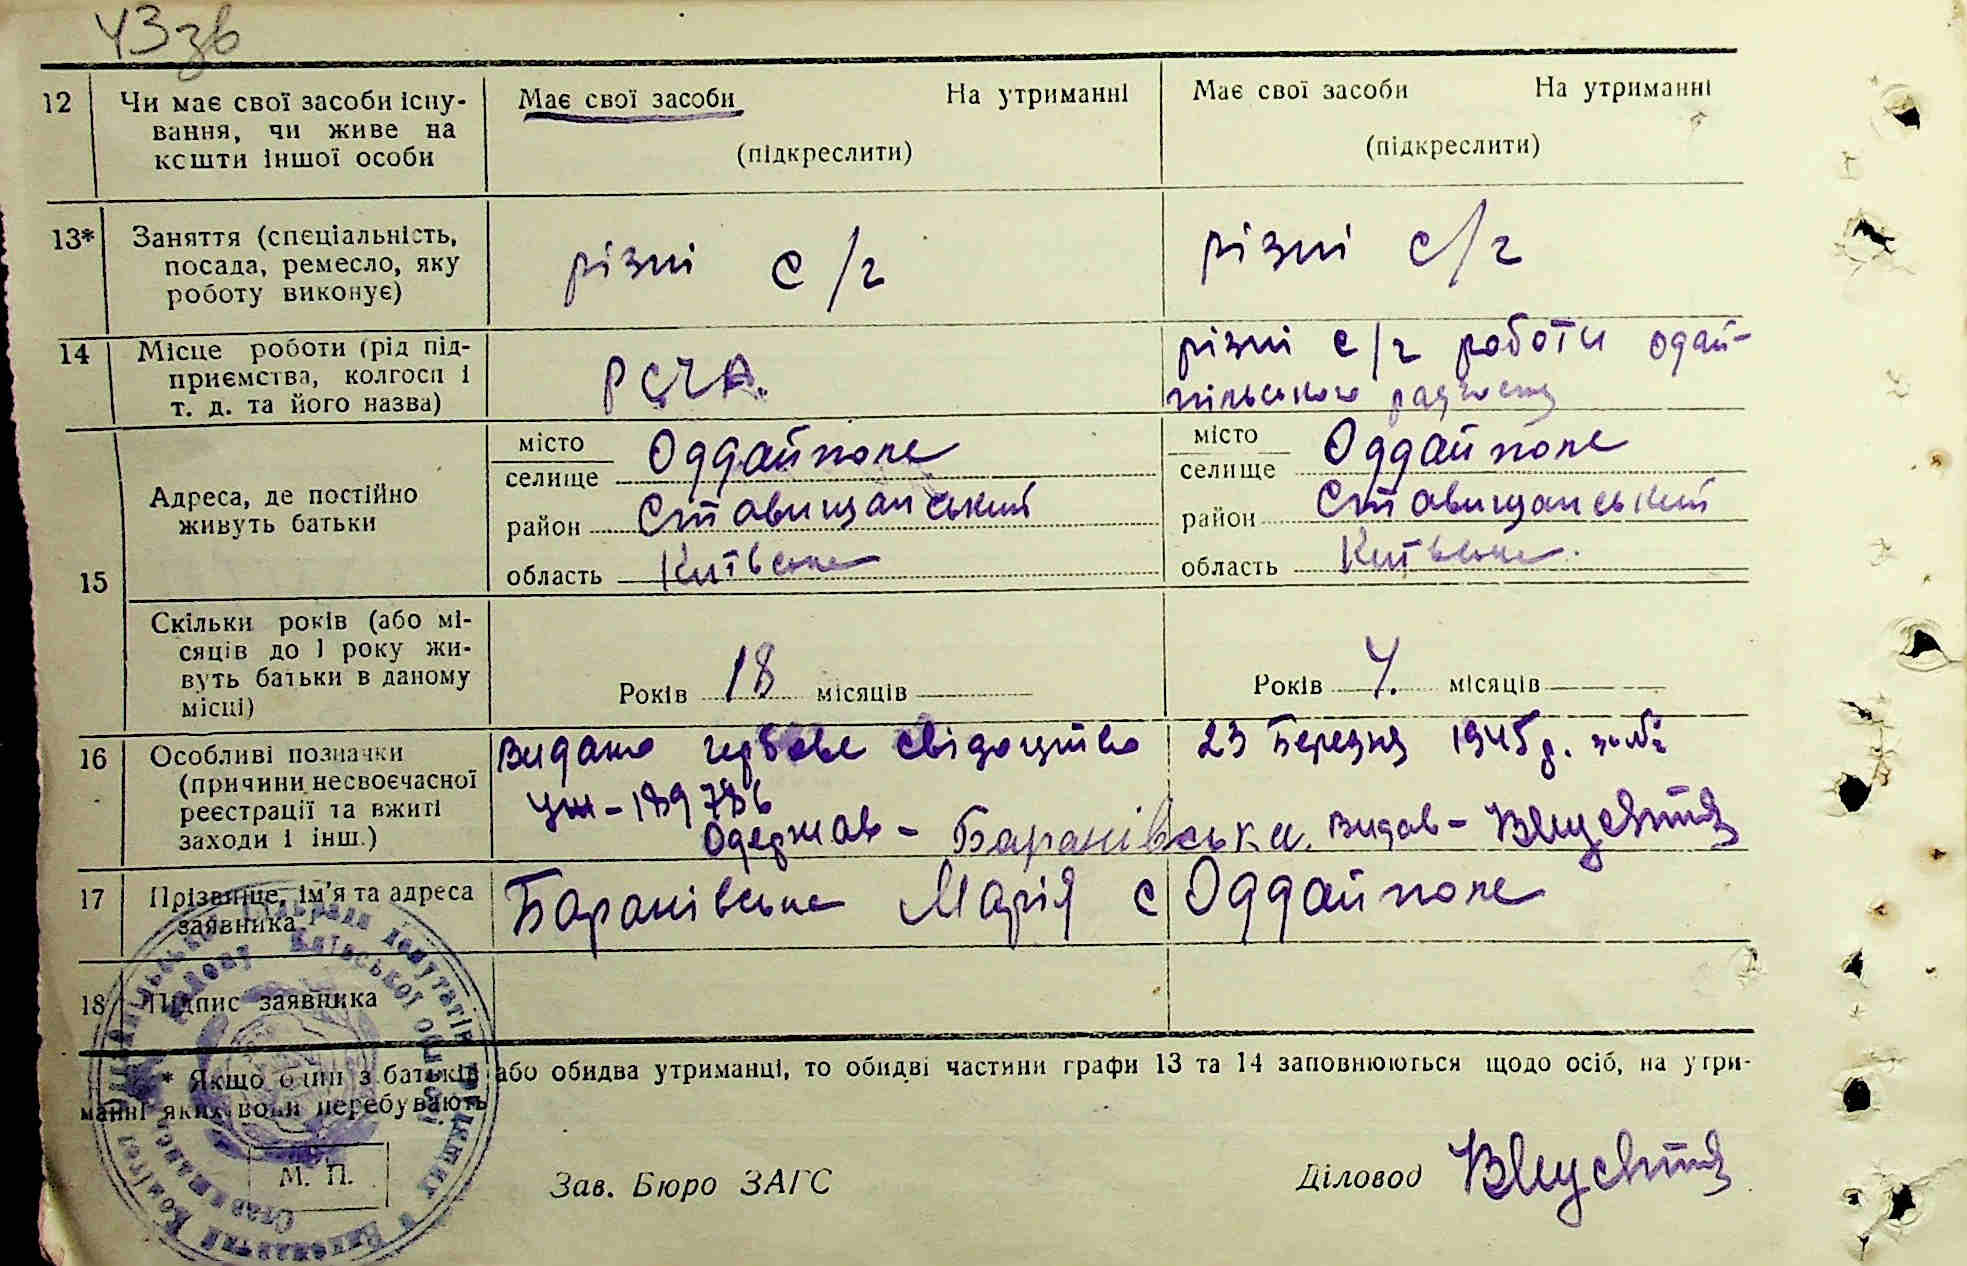 43зв
12 Чи має свої засоби існу-
вання, чи живе на
кошти іншої особи
Має свої засоби На утриманні
(підкреслити)
Має свої засоби На утриманні
(підкреслити)
13* Заняття (спеціальність,
посада, ремесло, яку
роботу виконує)
різні с/г
різні с/г
14 Місце роботи (рід під-
приємства, колгосп і
т. д. та його назва)
РСЧА.
різні с/г роботи Одай-
пільського радгоспу
15 Адреса, де постійно
живуть батьки
місто
селище Оддайполе
район Ставищанський
область Київська
місто
селище Оддайполе
район Ставищанський
область Київська.
Скільки років (або мі-
сяців до 1 року жи-
вуть батьки в даному
місці)
Років 18 місяців
Років 7. місяців
16 Особливі позначки
(причини несвоєчасної
реєстрації та вжиті
заходи і інш.)
видано гербове свідоцтво 23 Березня 1945р. за №
УЖ-189786
Одержав - Баранівська. Видав -
17 Прізвище, ім'я та адреса
заявника
Баранівська Марія с Оддайполе
18 Підпис заявника
* Якщо один з батьків або обидва утриманці, то обидві частини графи 13 та 14 заповнюються щодо осіб, на утри-
манні яких вони перебувають
М. П.
Зав. Бюро ЗАГС
Діловод